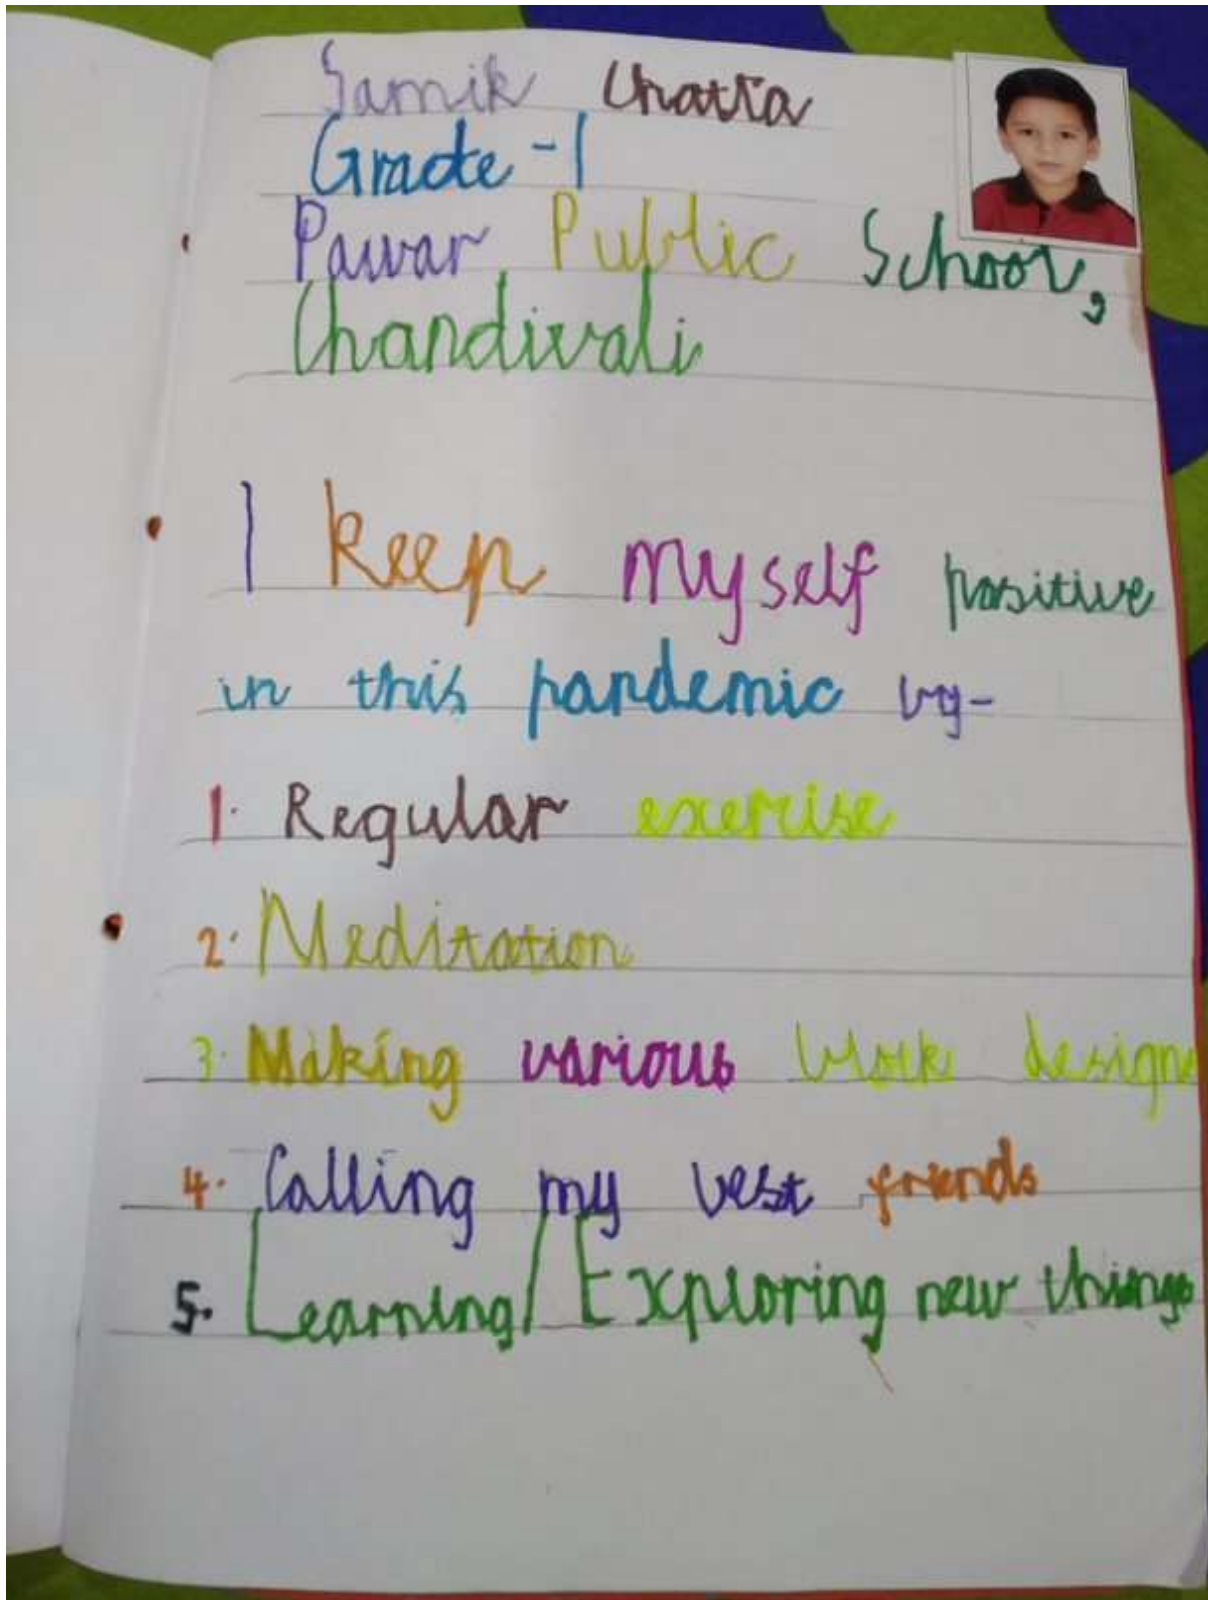 Samik Chatia
Grade - 1
Pawar Public School,
Chandivali
I keep myself positive
in this pandemic by-
1. Regular exercise
2. Meditation
3. Making various block designs
4. Calling my best friends
5. Learning/Exploring new things